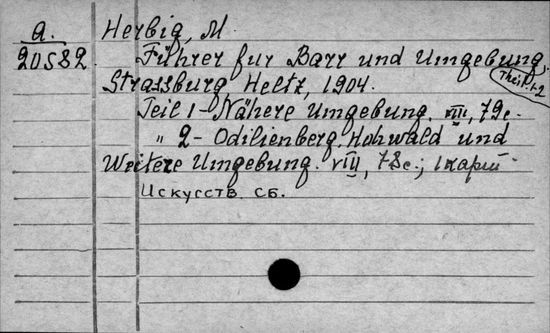 a. Herbig, M
20582 Führer fur Barr und Umgebung,
Theil 1-2
Strassburg Heltz, 1904.
Teil 1 - Nähere Umgebung. VIII, 79c.
„ 2 - Odilienberg, Hohwald und
Weitere Umgebung. VIII, 73c.;
Искусств. сб.